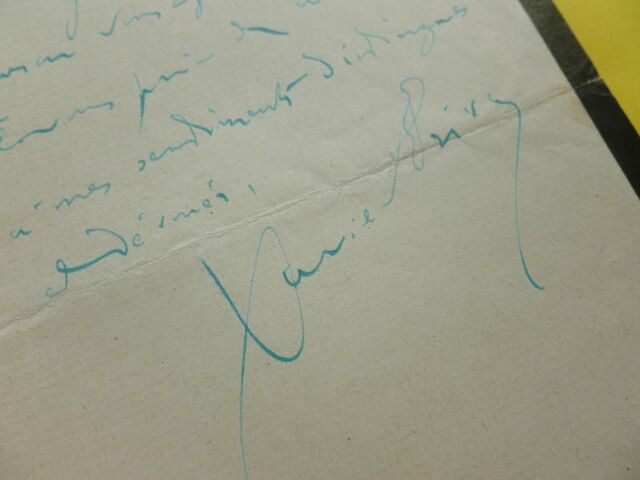 vous
vous prie de
à mes sentiments distingués
et dévoués,
Xavier Privas